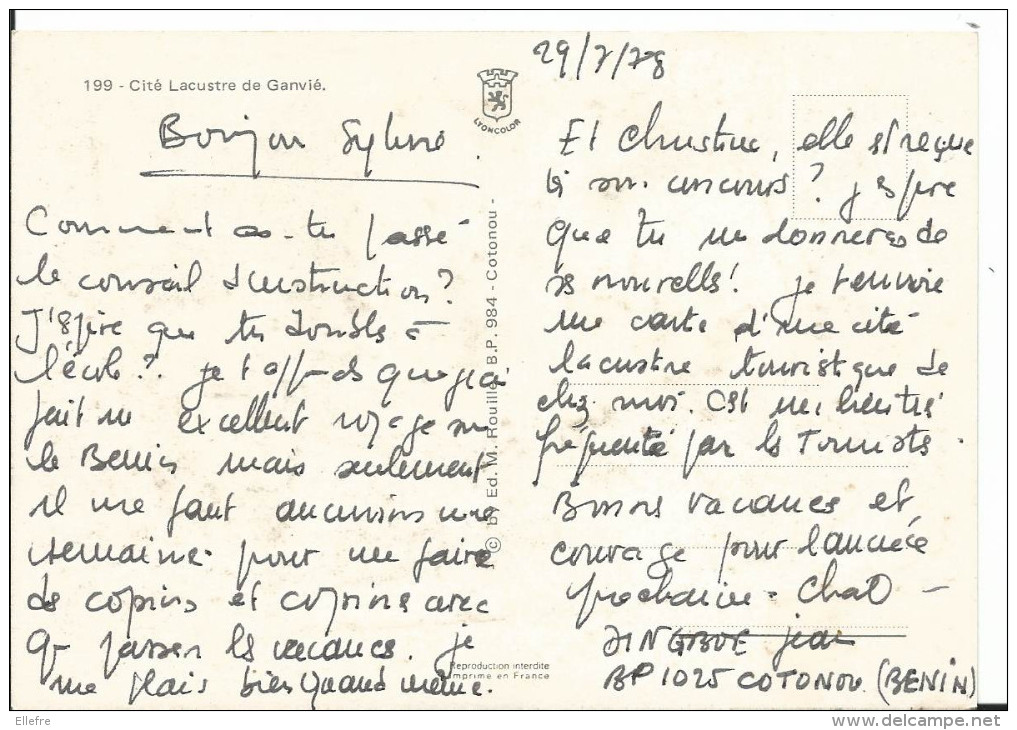 199 - Cité Lacustre de Ganvié.
Bonjour Sylvie.
Comment as-tu passé
le conseil d'instruction?
J'espère que tu doubles à
l'école?. je t'apprends que j'ai
fait un excellent voyage sur
le Benin mais seulement
il me faut au moins une
semaine pour me faire
des copins et copines avec
qui passer les vacances. je
me plais bien quand même.
29/7/78
LYONCOLOR
Et Christine, elle est reçue
à son concours? j'espère
que tu me donneras de
ses nouvelles! je t'envoie
une carte d'une cité
lacustre touristique de
chez moi. C'est un lieu très
fréquenté par les Touristes.
Bonnes vacances et
courage pour l'année
prochaine. Chao -
jean
BP 1025 COTONOU. (BENIN)
(c) by Ed. M. Rouillé B.P. 984 - Cotonou -
Reproduction interdite
Imprimé en France
Ellefre
www.delcampe.net